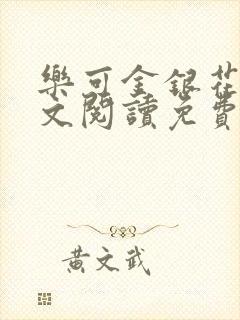 樂可金銀花
文閱讀免費
黃文武